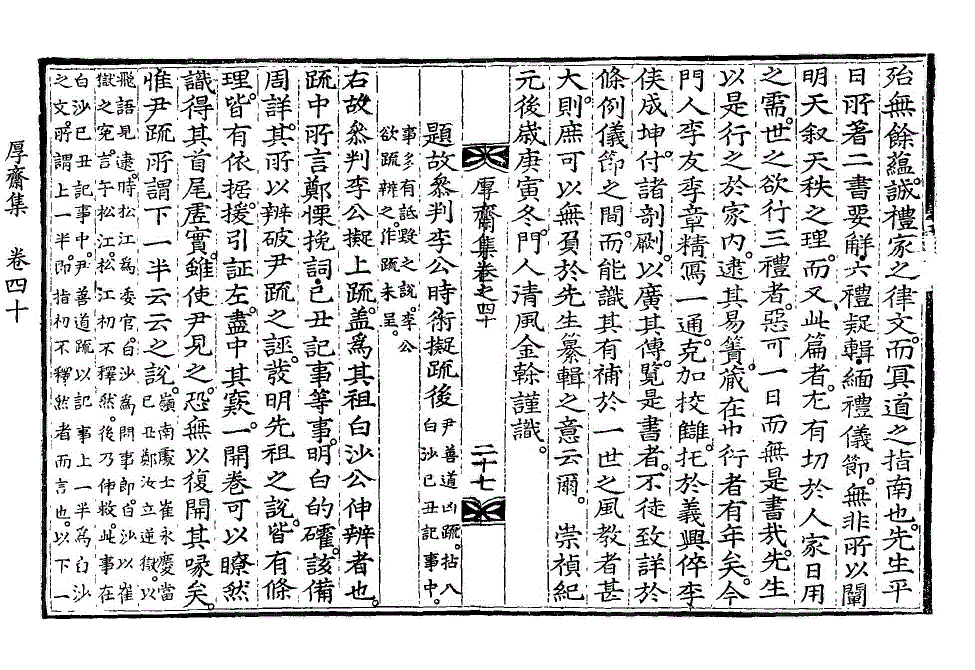 殆無餘蘊。誠禮家之律文。而冥道之指南也。先生平
日所著二書要觧。六禮疑輯。緬禮儀節。無非所以闡
明天叙天秩之理。而又此篇者。尤有切於人家日用
之需。世之欲行三禮者。惡可一日而無是書哉。先生
以是行之於家內。逮其易簀。蕆在巾衍者有年矣。今
門人李友季章精寫一通。克加挍讎。托於義興倅李
侯成坤。付諸剞劂。以廣其傳。覽是書者。不徒致詳於
條例儀節之間。而能識其有補於一世之風教者甚
大。則庶可以無負於先生纂輯之意云爾。 崇禎紀
元後歲庚寅冬。門人清風金榦謹識。
厚齋集卷之四十 二十七
題故叅判李公時術擬疏後 尹善道凶疏。拈八白沙己丑記事中。
事多有詆毁之說。李公
欲疏辨之。作疏未呈。
右故叅判李公擬上疏。盖爲其祖白沙公伸辨者也。
疏中所言鄭慄挽詞。己丑記事等事。明白的確。該備
周詳。其所以辨破尹疏之誣。發明先祖之說。皆有條
理。皆有依据。援引証左。盡中其窾。一開卷可以瞭然
識得其首尾虗實。雖使尹見之。恐無以復開其喙矣。
惟尹疏所謂下一半云云之說。嶺南處士崔永慶當己丑鄭汝立逆獄。以
飛語見逮。時松江爲委官。白沙爲問事郎。白沙以崔
獄之寃。言于松江。松江初不釋然。後乃伸救。此事在
白沙己丑記事中。尹善道疏以記事上一半爲白沙
之文。所謂上一半。即指初不釋然者而言也。以下一
厚齋集 卷四十